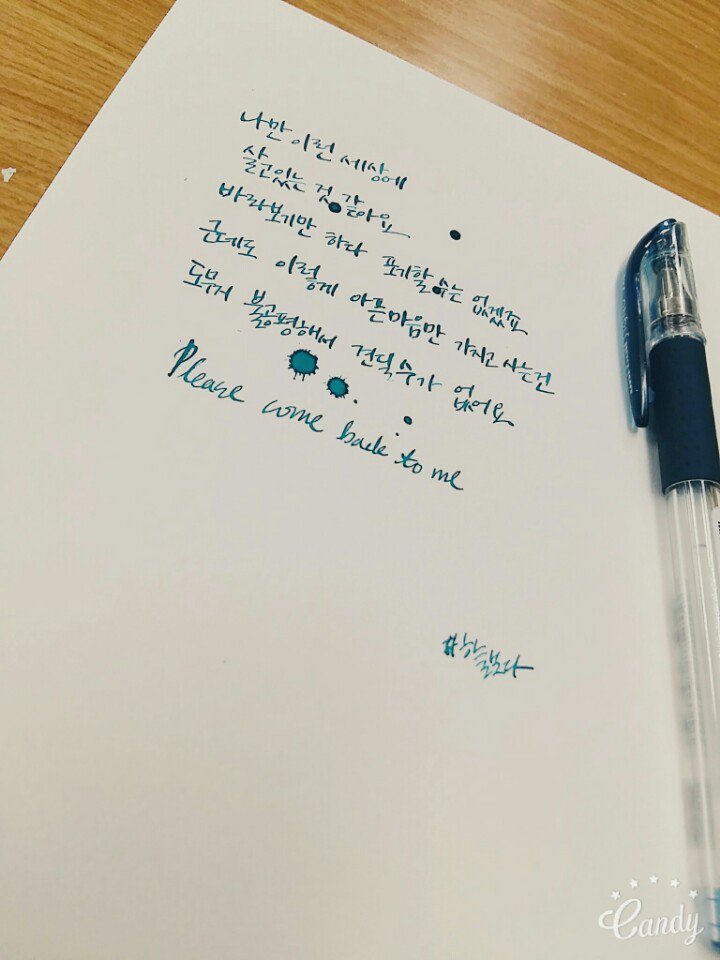 나만 이런 세상에
살고있는 것 같아요
바라보기만 하다 포기할 수는 없겠죠
근데도 이렇게 아픈마음만 가지고 사는건
도무지 불공평해서 견딜수가 없어요
Please come back to me
#하늘보다
Candy